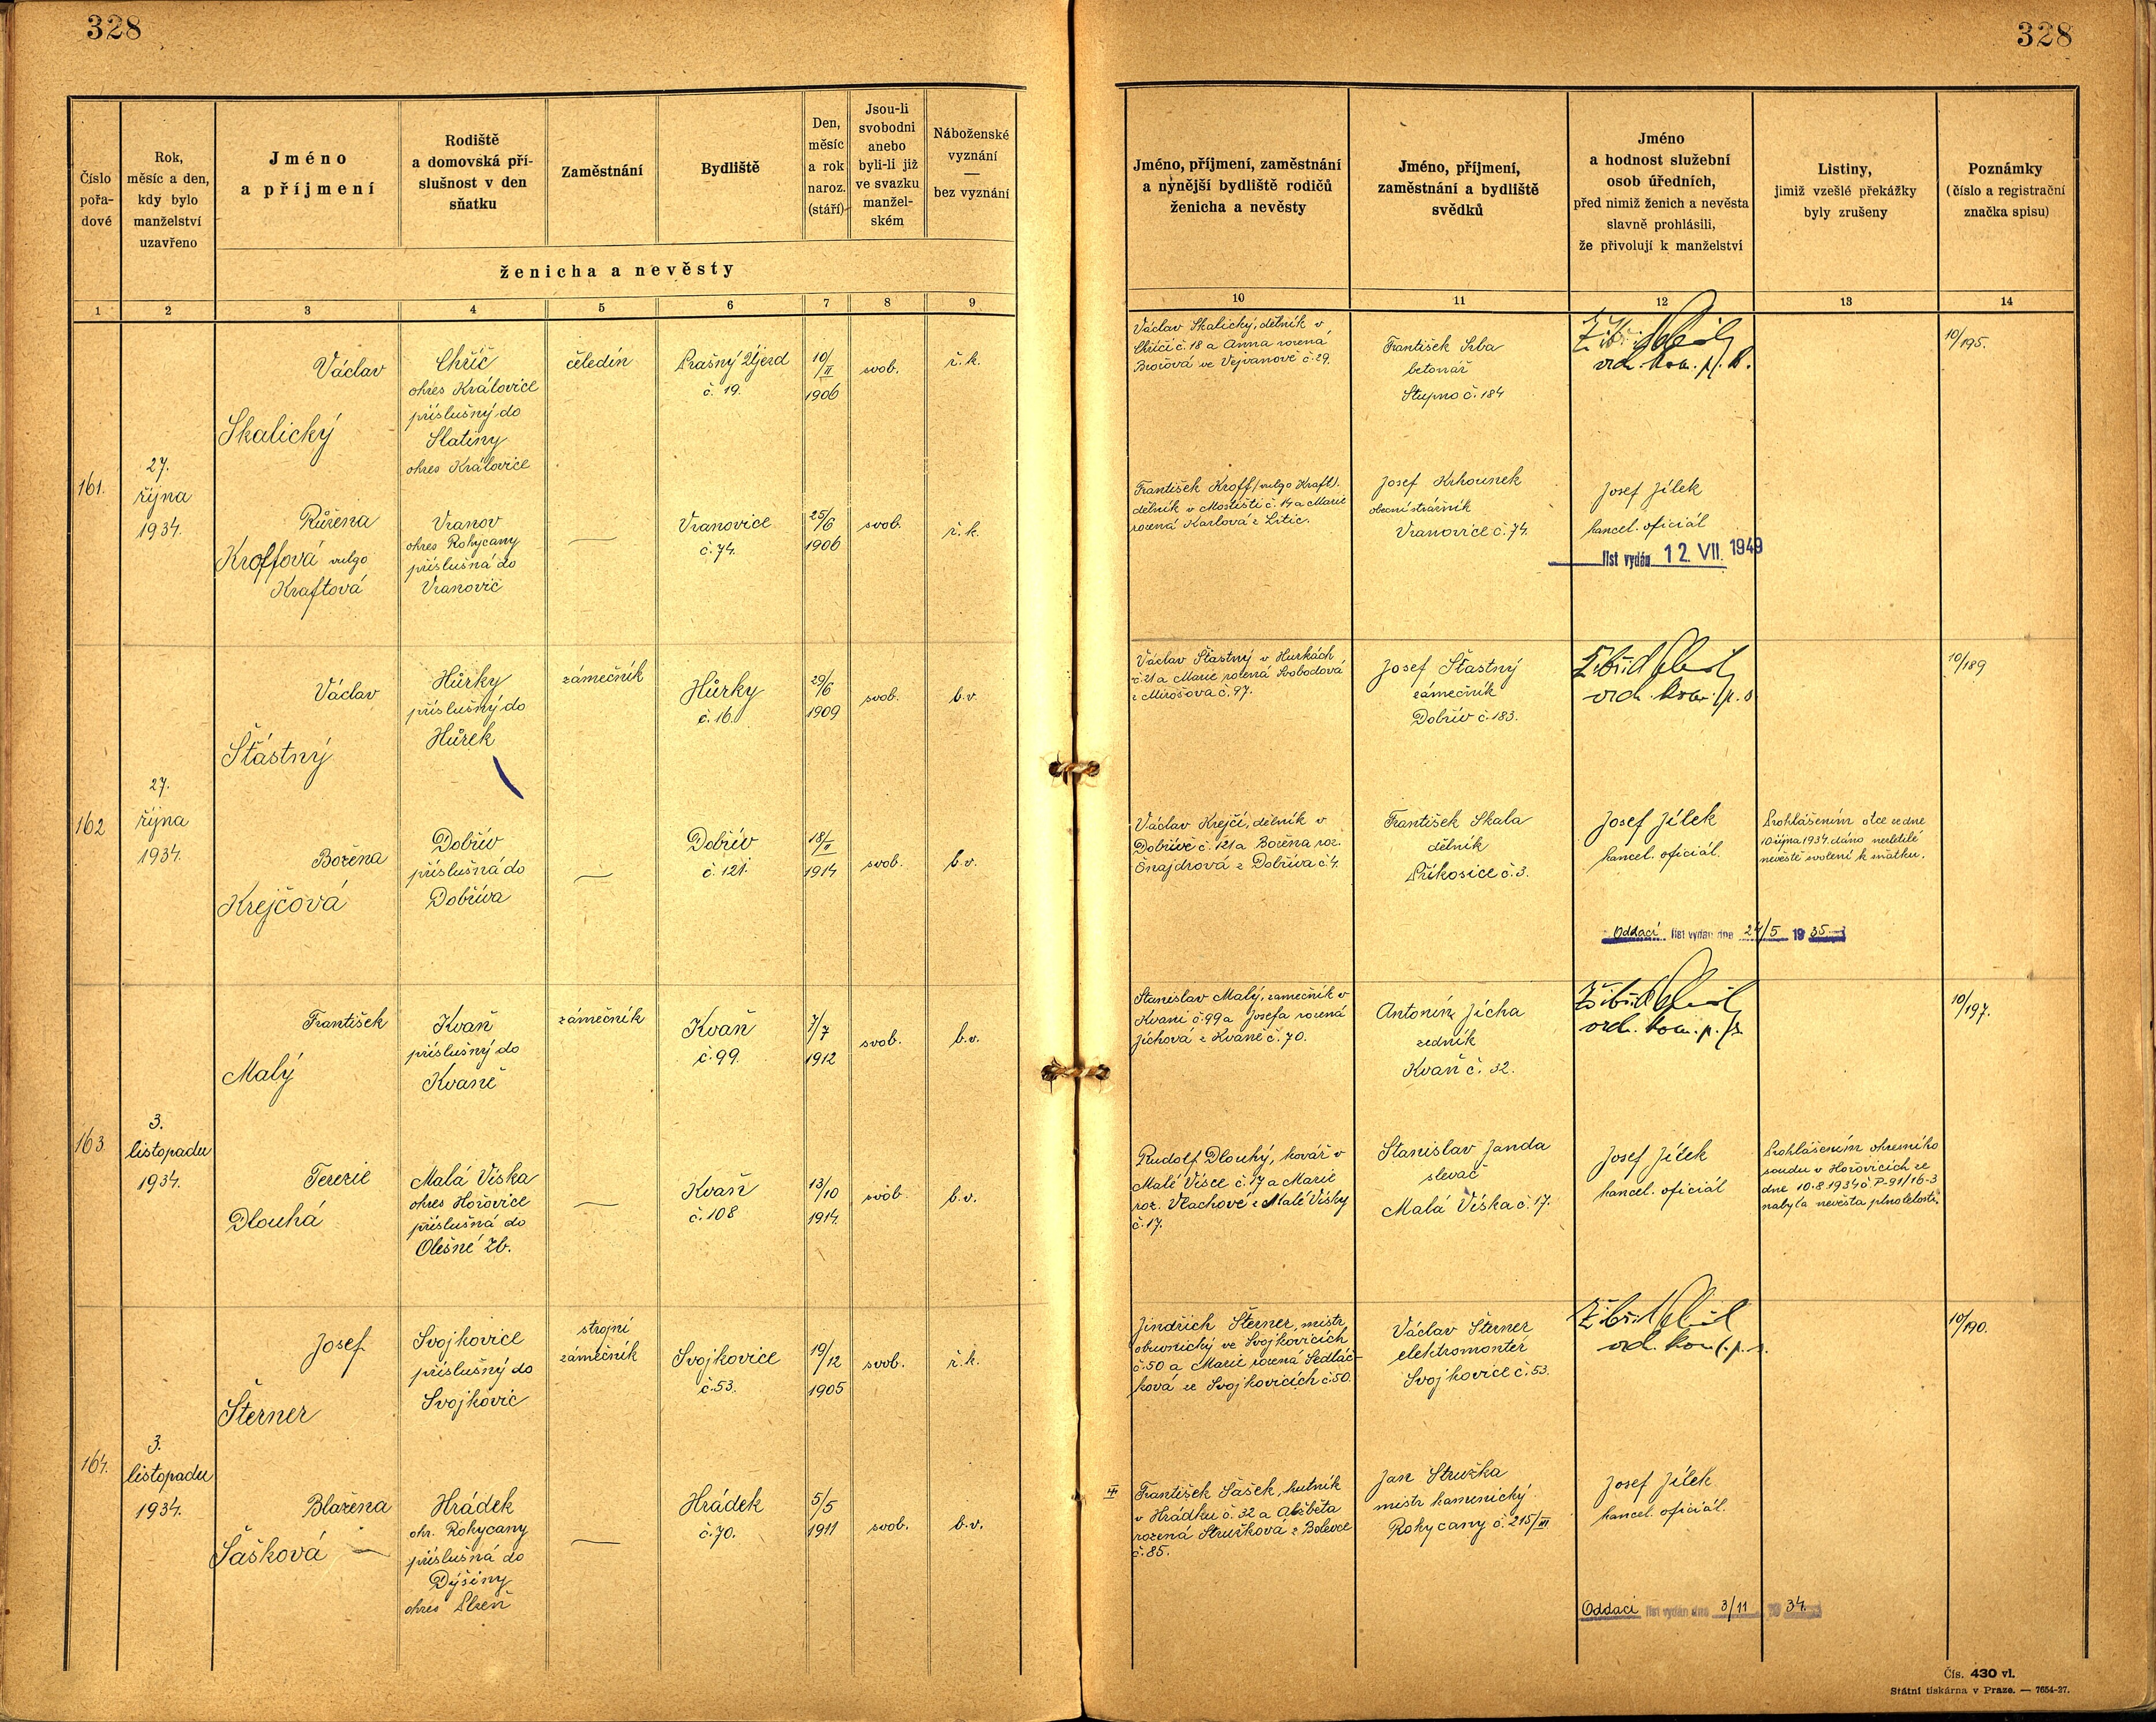 328
328
Číslo
pořa-
dové
Rok,
měsíc a den,
kdy bylo
manželství
uzavřeno
Jméno
a příjmení
Rodiště
a domovská pří-
slušnost v den
sňatku
Zaměstnání
Bydliště
Den,
měsíc
a rok
naroz.
(stáří)
Jsou-li
svobodni
anebo
byli-li již
ve svazku
manžel-
ském
Náboženské
vyznání
—
bez vyznání
ženicha a nevěsty
Jméno, příjmení, zaměstnání
a nynější bydliště rodičů
ženicha a nevěsty
Jméno, příjmení,
zaměstnání a bydliště
svědků
Jméno
a hodnost služební
osob úředních,
před nimiž ženich a nevěsta
slavně prohlásili,
že přivolují k manželství
Listiny,
jimiž vzešlé překážky
byly zrušeny
Poznámky
(číslo a registrační
značka spisu)
1 2 3 4 5 6 7 8 9 10 11 12 13 14
161.
27.
října
1934.
Václav
Skalický
Chříč
okres Kralovice
příslušný do
Slatiny
okres Kralovice
čeledín
Prašný Újezd
č. 19.
10/II
1906
svob.
ř. k.
Václav Skalický, dělník v
Chříči č. 18 a Anna rozená
Brožová ve Vejvanově č. 29.
František Srba
betonář
Stupno č. 184
vrch. kom.
10/195.
Růžena
Kroffová vulgo
Kraftová
Vranov
okres Rokycany
příslušná do
Vranovic
—
Vranovice
č. 74.
25/6
1906
svob.
ř. k.
František Kroff (vulgo Kraft).
dělník v Mostišti č. 14 a Marie
rozená Karlová z Litic.
Josef Krhounek
obecní strážník
Vranovice č. 74.
Josef Jílek
kancel. oficiál
list vydán 12. VII. 1949
162
27.
října
1934.
Václav
Šťastný
Hůrky
příslušný do
Hůrek
zámečník
Hůrky
č. 16.
29/6
1909
svob.
b. v.
Václav Šťastný v Hurkách
č. 21 a Marie rozená Svobodová
z Mirošova č. 97.
Josef Šťastný
zámečník
Dobřív č. 183.
vrch. kom.
10/189
Božena
Krejčová
Dobřív
příslušná do
Dobříva
—
Dobřív
č. 121.
18/II
1914
svob.
b. v.
Václav Krejčí, dělník v
Dobřívě č. 121 a Božena roz.
Šnajdrová z Dobříva č. 4.
František Skala
dělník
Příkosice č. 3.
Josef Jílek
kancel. oficiál.
Prohlášením otce ze dne
10 října 1934. dáno nezletilé
nevěstě svolení k sňatku.
Oddací list vydán dne 24/5 19 35
163
3.
listopadu
1934.
František
Malý
Kvaň
příslušný do
Kvaně
zámečník
Kvaň
č. 99.
7/7
1912
svob.
b. v.
Stanislav Malý, zámečník v
Kvani č. 99 a Josefa rozená
Jíchová z Kvaně č. 70.
Antonín Jícha
zedník
Kvaň č. 32.
vrch. kom.
10/197.
Terezie
Dlouhá
Malá Víska
okres Hořovice
příslušná do
Olešné Zb.
—
Kvaň
č. 108
13/10
1914.
svob.
b. v.
Rudolf Dlouhý, kovář v
Malé Vísce č. 17 a Marie
roz. Vlachové z Malé Vísky
č. 17.
Stanislav Janda
slevač
Malá Víska č. 17.
Josef Jílek
kancel. oficiál
Prohlášením okresního
soudu v Hořovicích ze
dne 10. 8. 1934 č. P-91/16-3
nabyla nevěsta plnoletosti.
164.
3.
listopadu
1934.
Josef
Šterner
Svojkovice
příslušný do
Svojkovic
strojní
zámečník
Svojkovice
č. 53.
19/12
1905
svob.
ř. k.
Jindřich Šterner, mistr
obuvnický ve Svojkovicích
č. 50 a Marie rozená Sedláč-
ková ze Svojkovicích č. 50.
Václav Šterner
elektromontér
Svojkovice č. 53.
vrch. kom.
10/190.
Blažena
Šašková —
Hrádek
okr. Rokycany
příslušná do
Dýšiny
okres Plzeň
—
Hrádek
č. 70.
5/5
1911
svob.
b. v.
František Šašek, hutník
v Hrádku č. 32 a Alžběta
rozená Stružková z Bolevce
č. 85.
Jan Stružka
mistr kamenický
Rokycany č. 215/III
Josef Jílek
kancel. oficiál.
Oddací list vydán dne 3/11 19 34.
Čís. 430 vl.
Státní tiskárna v Praze. — 7654-27.